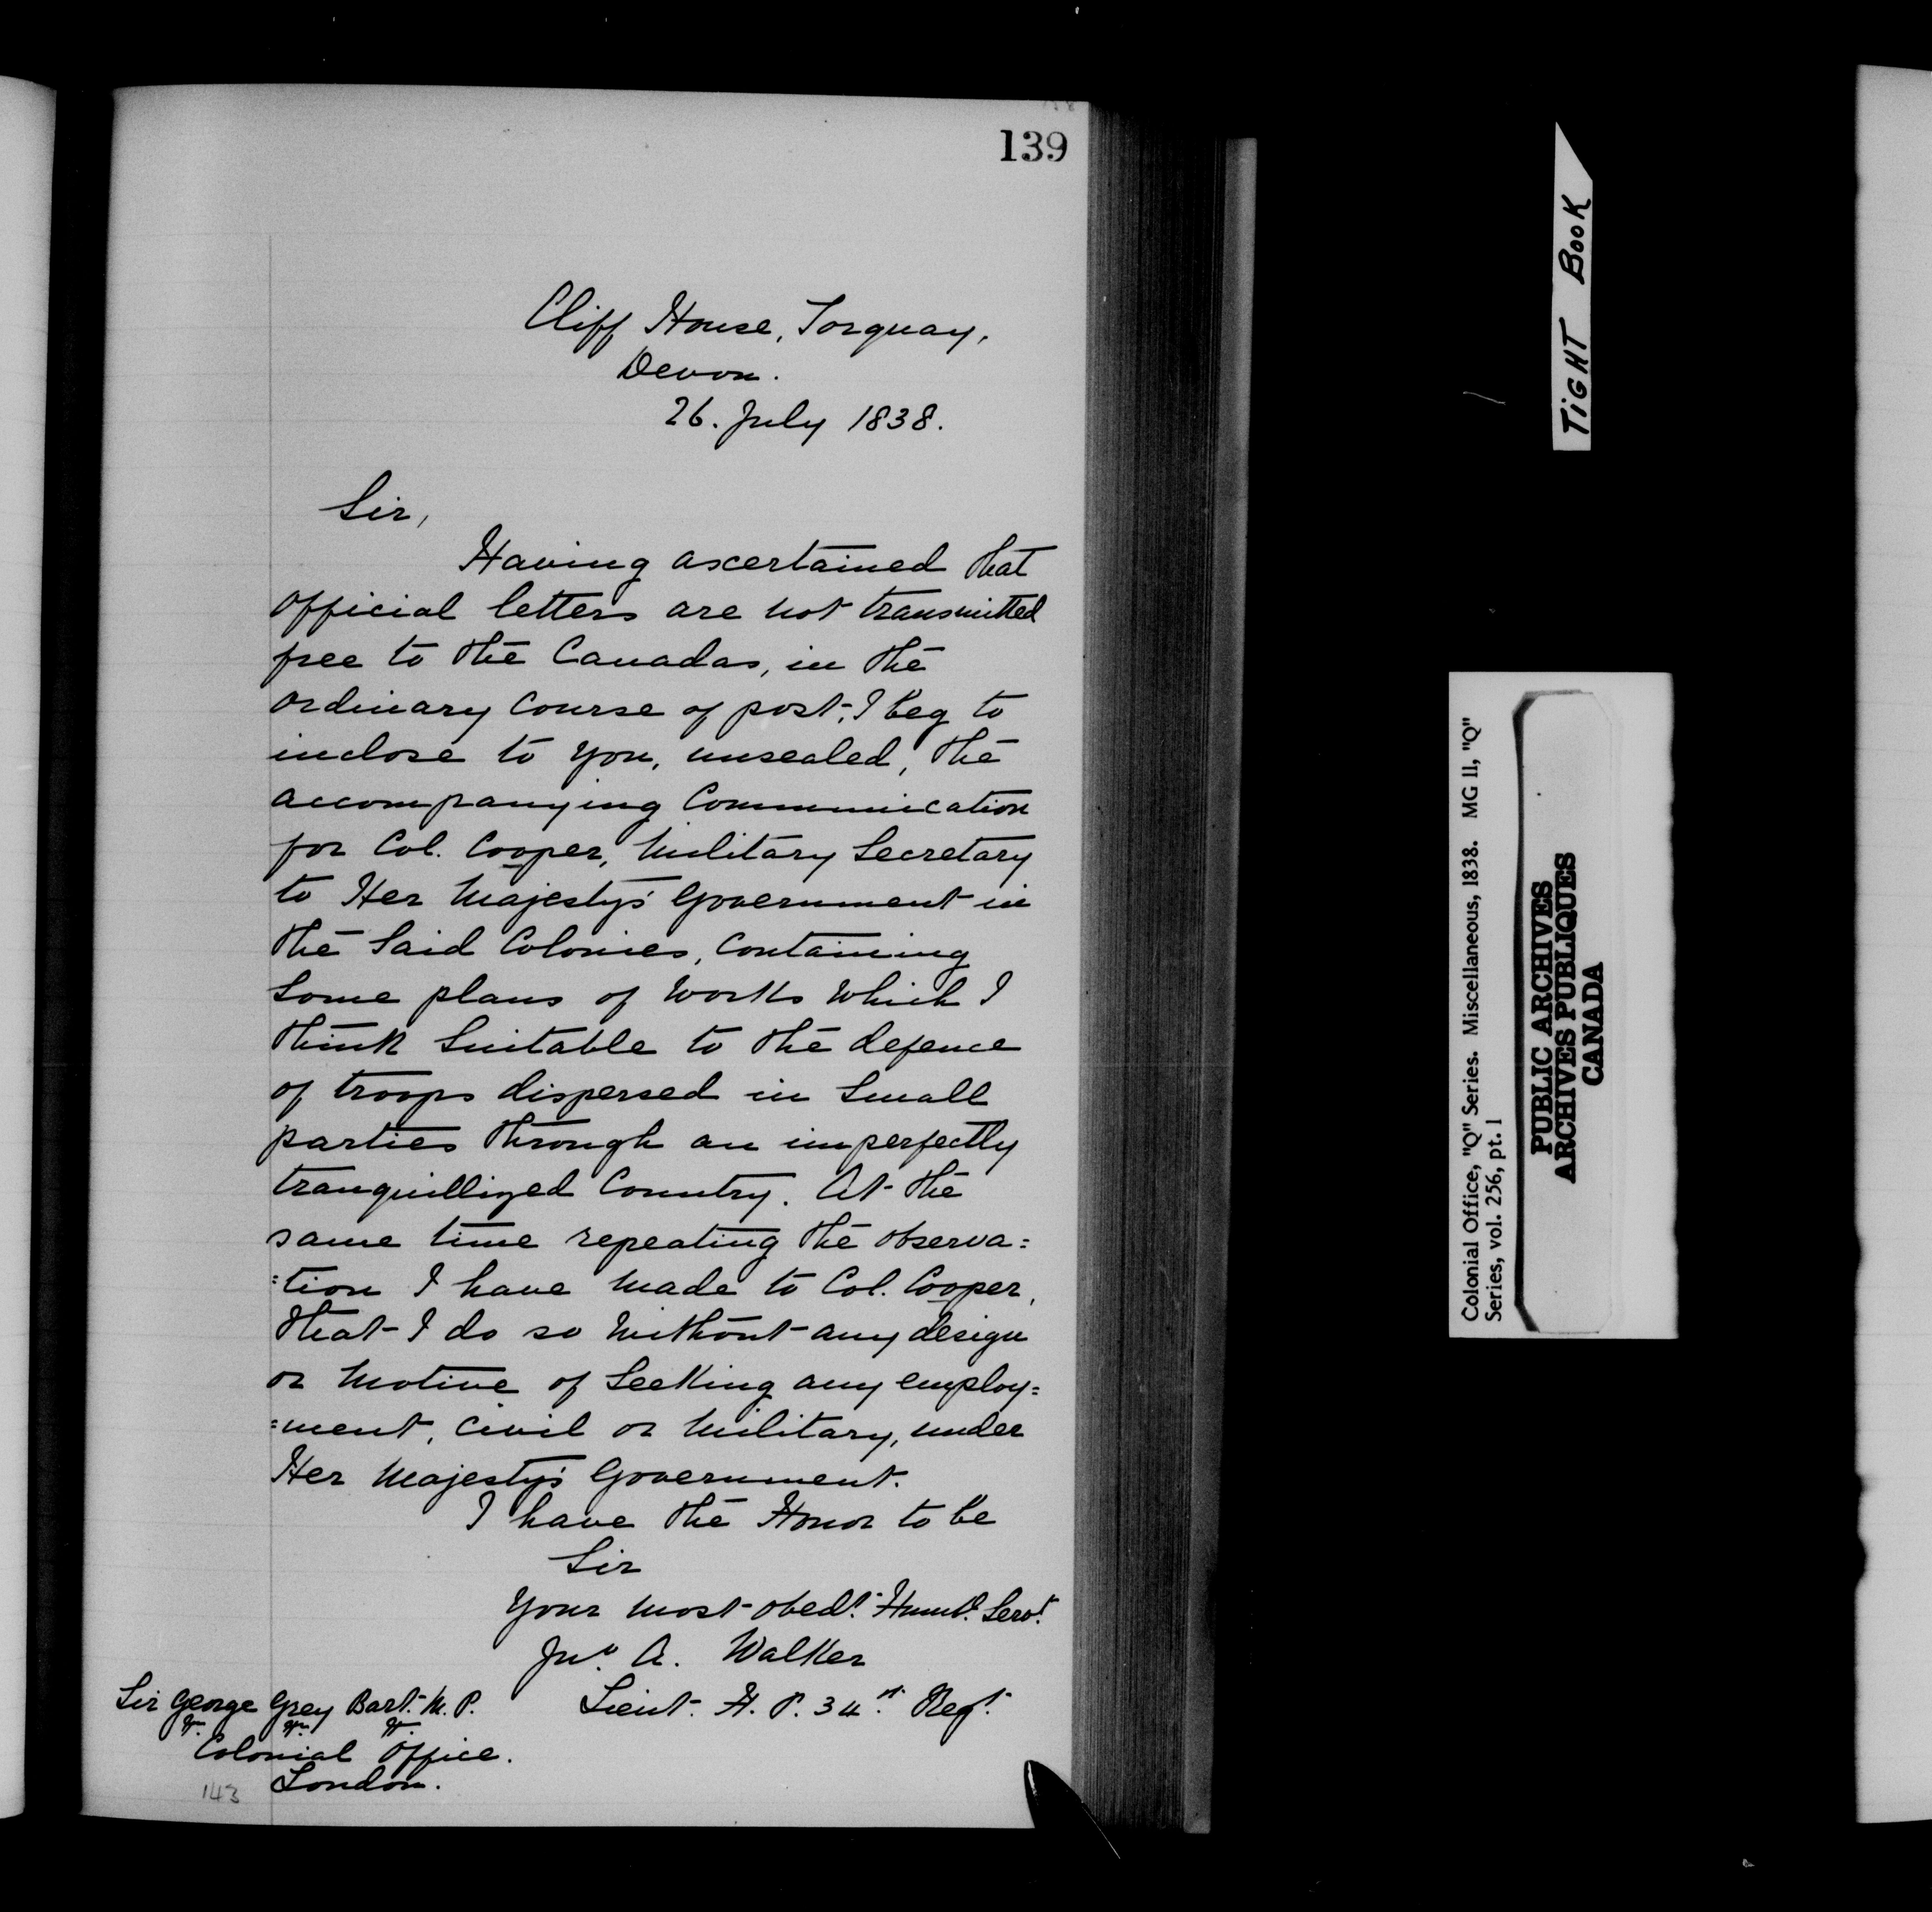 139
Cliff House, Torquay,
Devon.
26. July 1838.
Sir,
Having ascertained that
official letters are not transmitted
free to the Canadas, in the
ordinary course of post, I beg to
inclose to you, unsealed, the
accompanying Communication
for Col. Cooper, Military Secretary
to Her Majesty's Government in
the said Colonies, containing
some plans of works which I
think suitable to the defence
of troops dispersed in small
parties through an imperfectly
tranquillized Country. At the
same time repeating the observa=
=tion I have made to Col. Cooper,
that I do so without any design
or motive of seeking any employ=
=ment, civil or military, under
Her Majesty's Government.
I have the Honor to be
Sir
Your most obedt. Humb. Servt.
Jno. A. Walker
Lieut. H. P. 34th. Regt.
Sir George Grey Bart. M. P.
Colonial Office.
London.
143
TIGHT BOOK
Colonial Office, "Q" Series. Miscellaneous, 1838. MG 11, "Q"
Series, vol. 256, pt. 1
PUBLIC ARCHIVES
ARCHIVES PUBLIQUES
CANADA